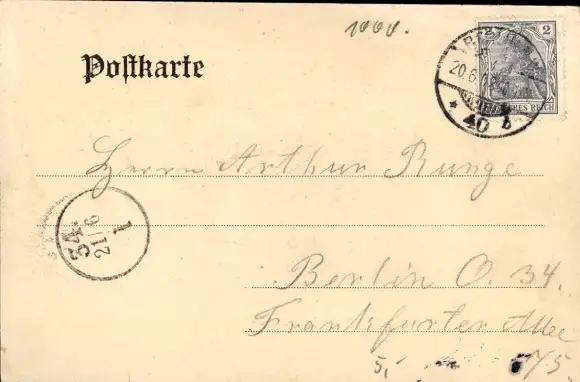 1000.
Postkarte
2
20.6
REICH
* 40 b
Herrn Arthur Runge
34.
21/6
1
Berlin O. 34.
Frankfurter Allee
5,